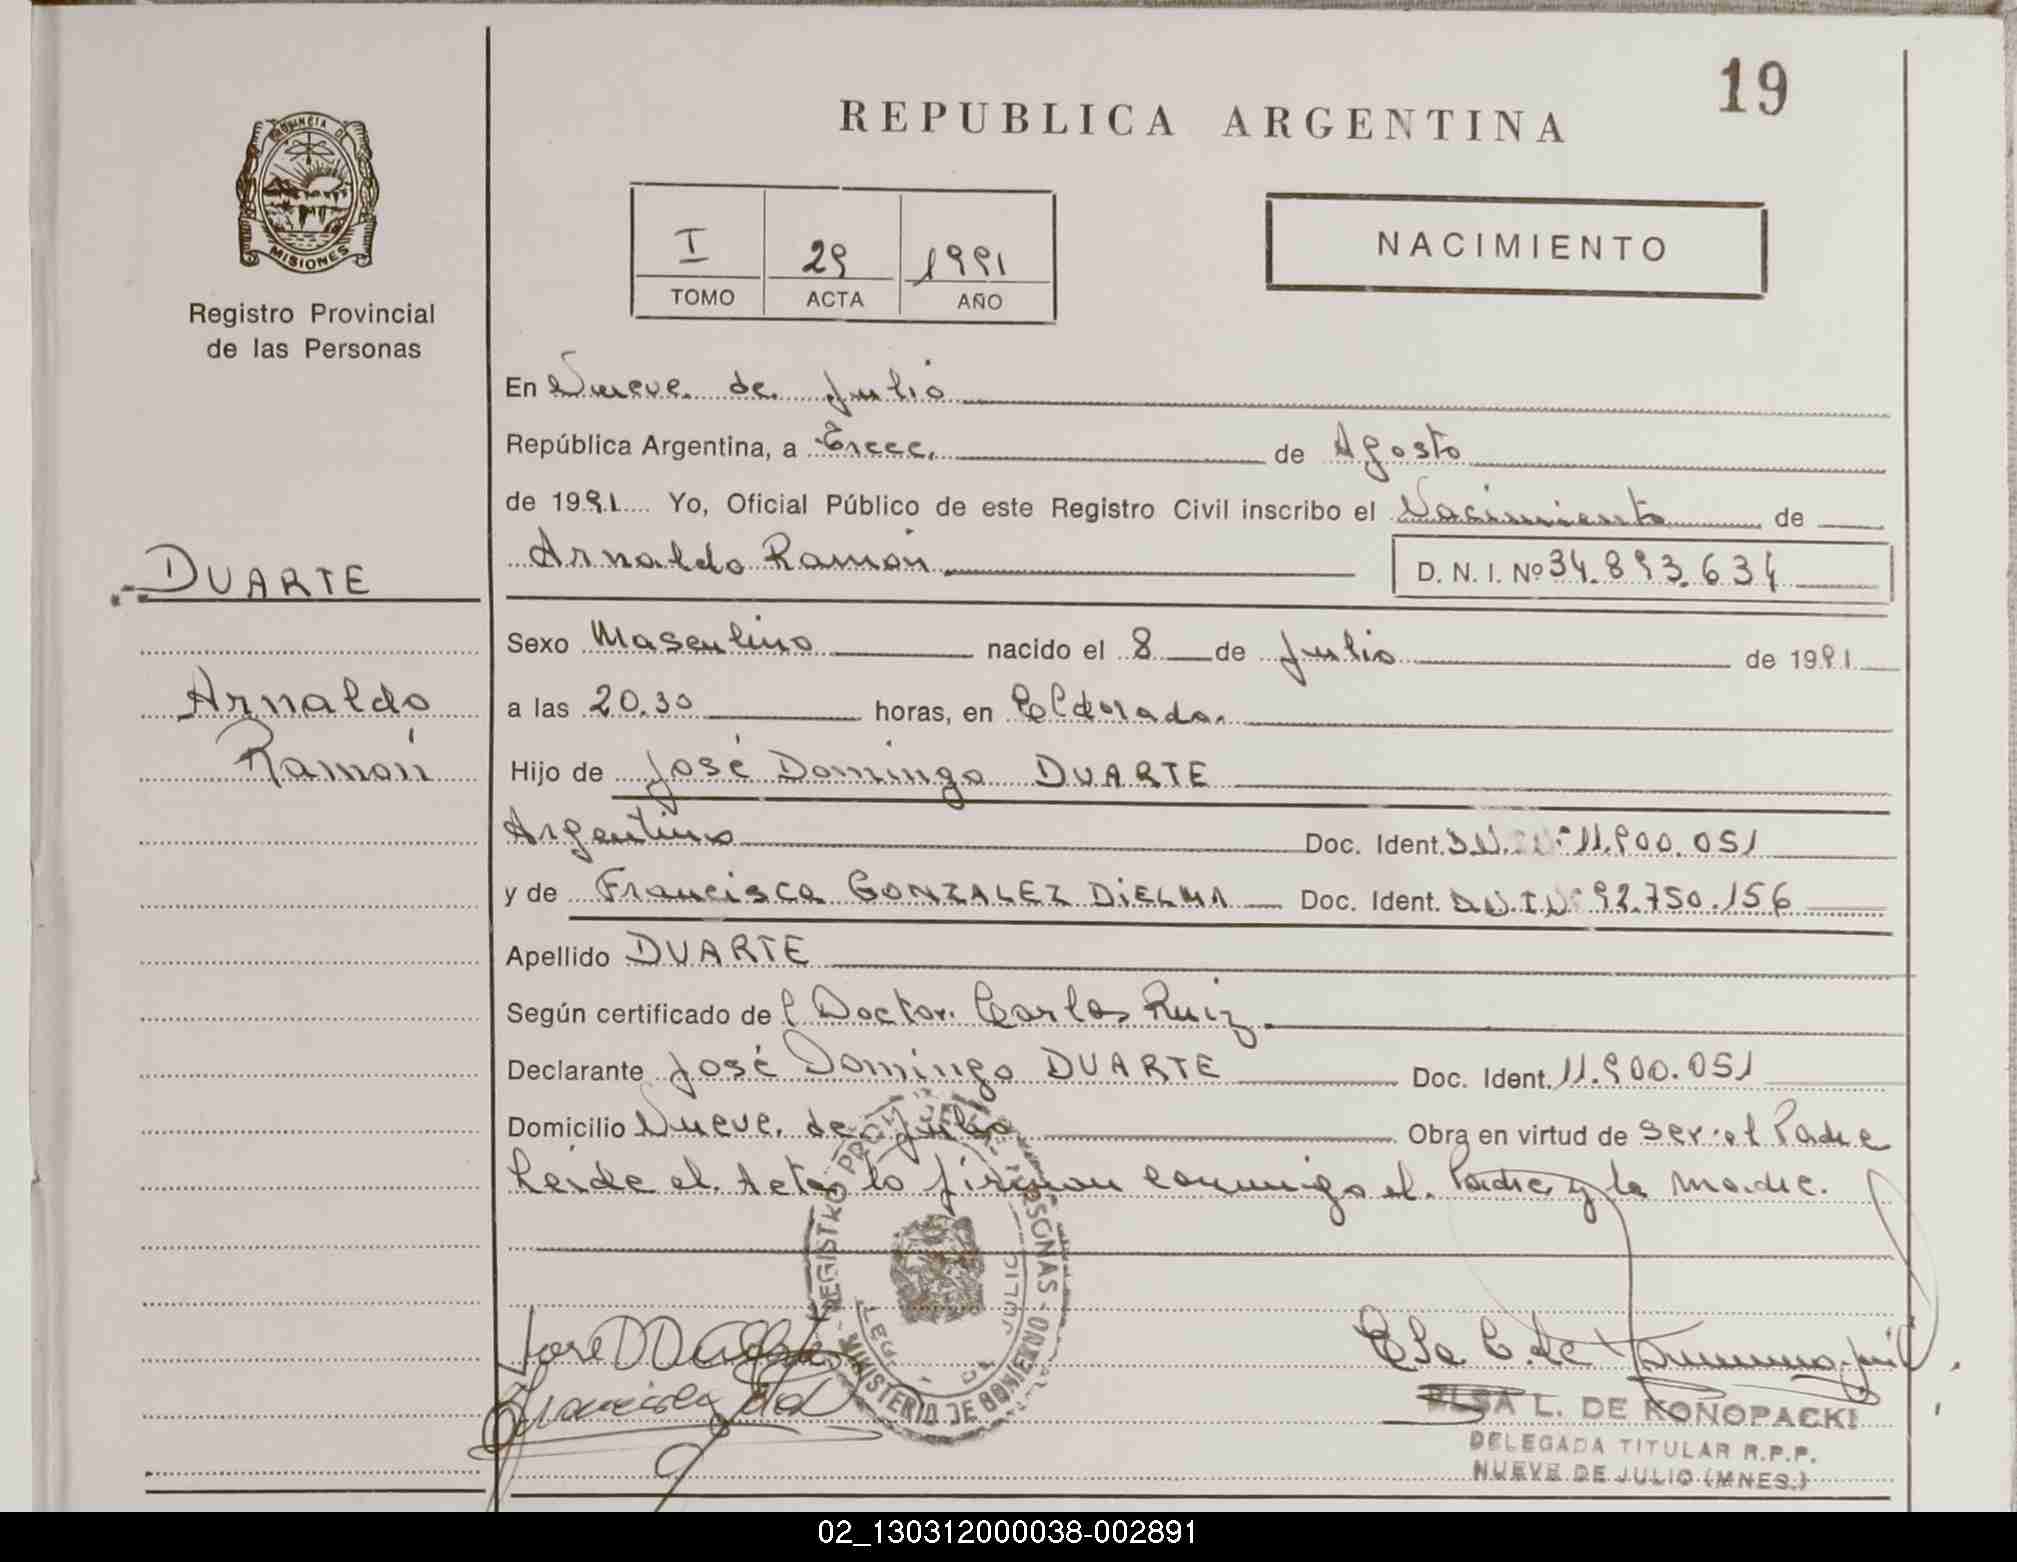 19
REPUBLICA ARGENTINA
PROVINCIA DE
MISIONES
Registro Provincial
de las Personas
I 29 1991
TOMO ACTA AÑO
NACIMIENTO
En Nueve de Julio
República Argentina, a Trece de Agosto
de 1991 Yo, Oficial Público de este Registro Civil inscribo el Nacimiento de
Arnaldo Ramón D. N. I. Nº 34.893.634
DUARTE
Arnaldo
Ramón
Sexo Masculino nacido el 8 de Julio de 1991
a las 20.30 horas, en Eldorado
Hijo de José Domingo DUARTE
Argentino Doc. Ident. D.N.I. Nº 11.900.051
y de Francisca GONZALEZ DIELMA Doc. Ident. D.N.I. Nº 92.750.156
Apellido DUARTE
Según certificado del Doctor Carlos Ruiz
Declarante José Domingo DUARTE Doc. Ident. 11.900.051
Domicilio Nueve de Julio Obra en virtud de ser el Padre
Leida el Acta lo firman conmigo el Padre y la madre.
REGISTRO PERSONAS
MINISTERIO DE GOBIERNO
JULIO
ELSA L. DE KONOPACKI
DELEGADA TITULAR R.P.P.
NUEVE DE JULIO (MNES.)
02_130312000038-002891